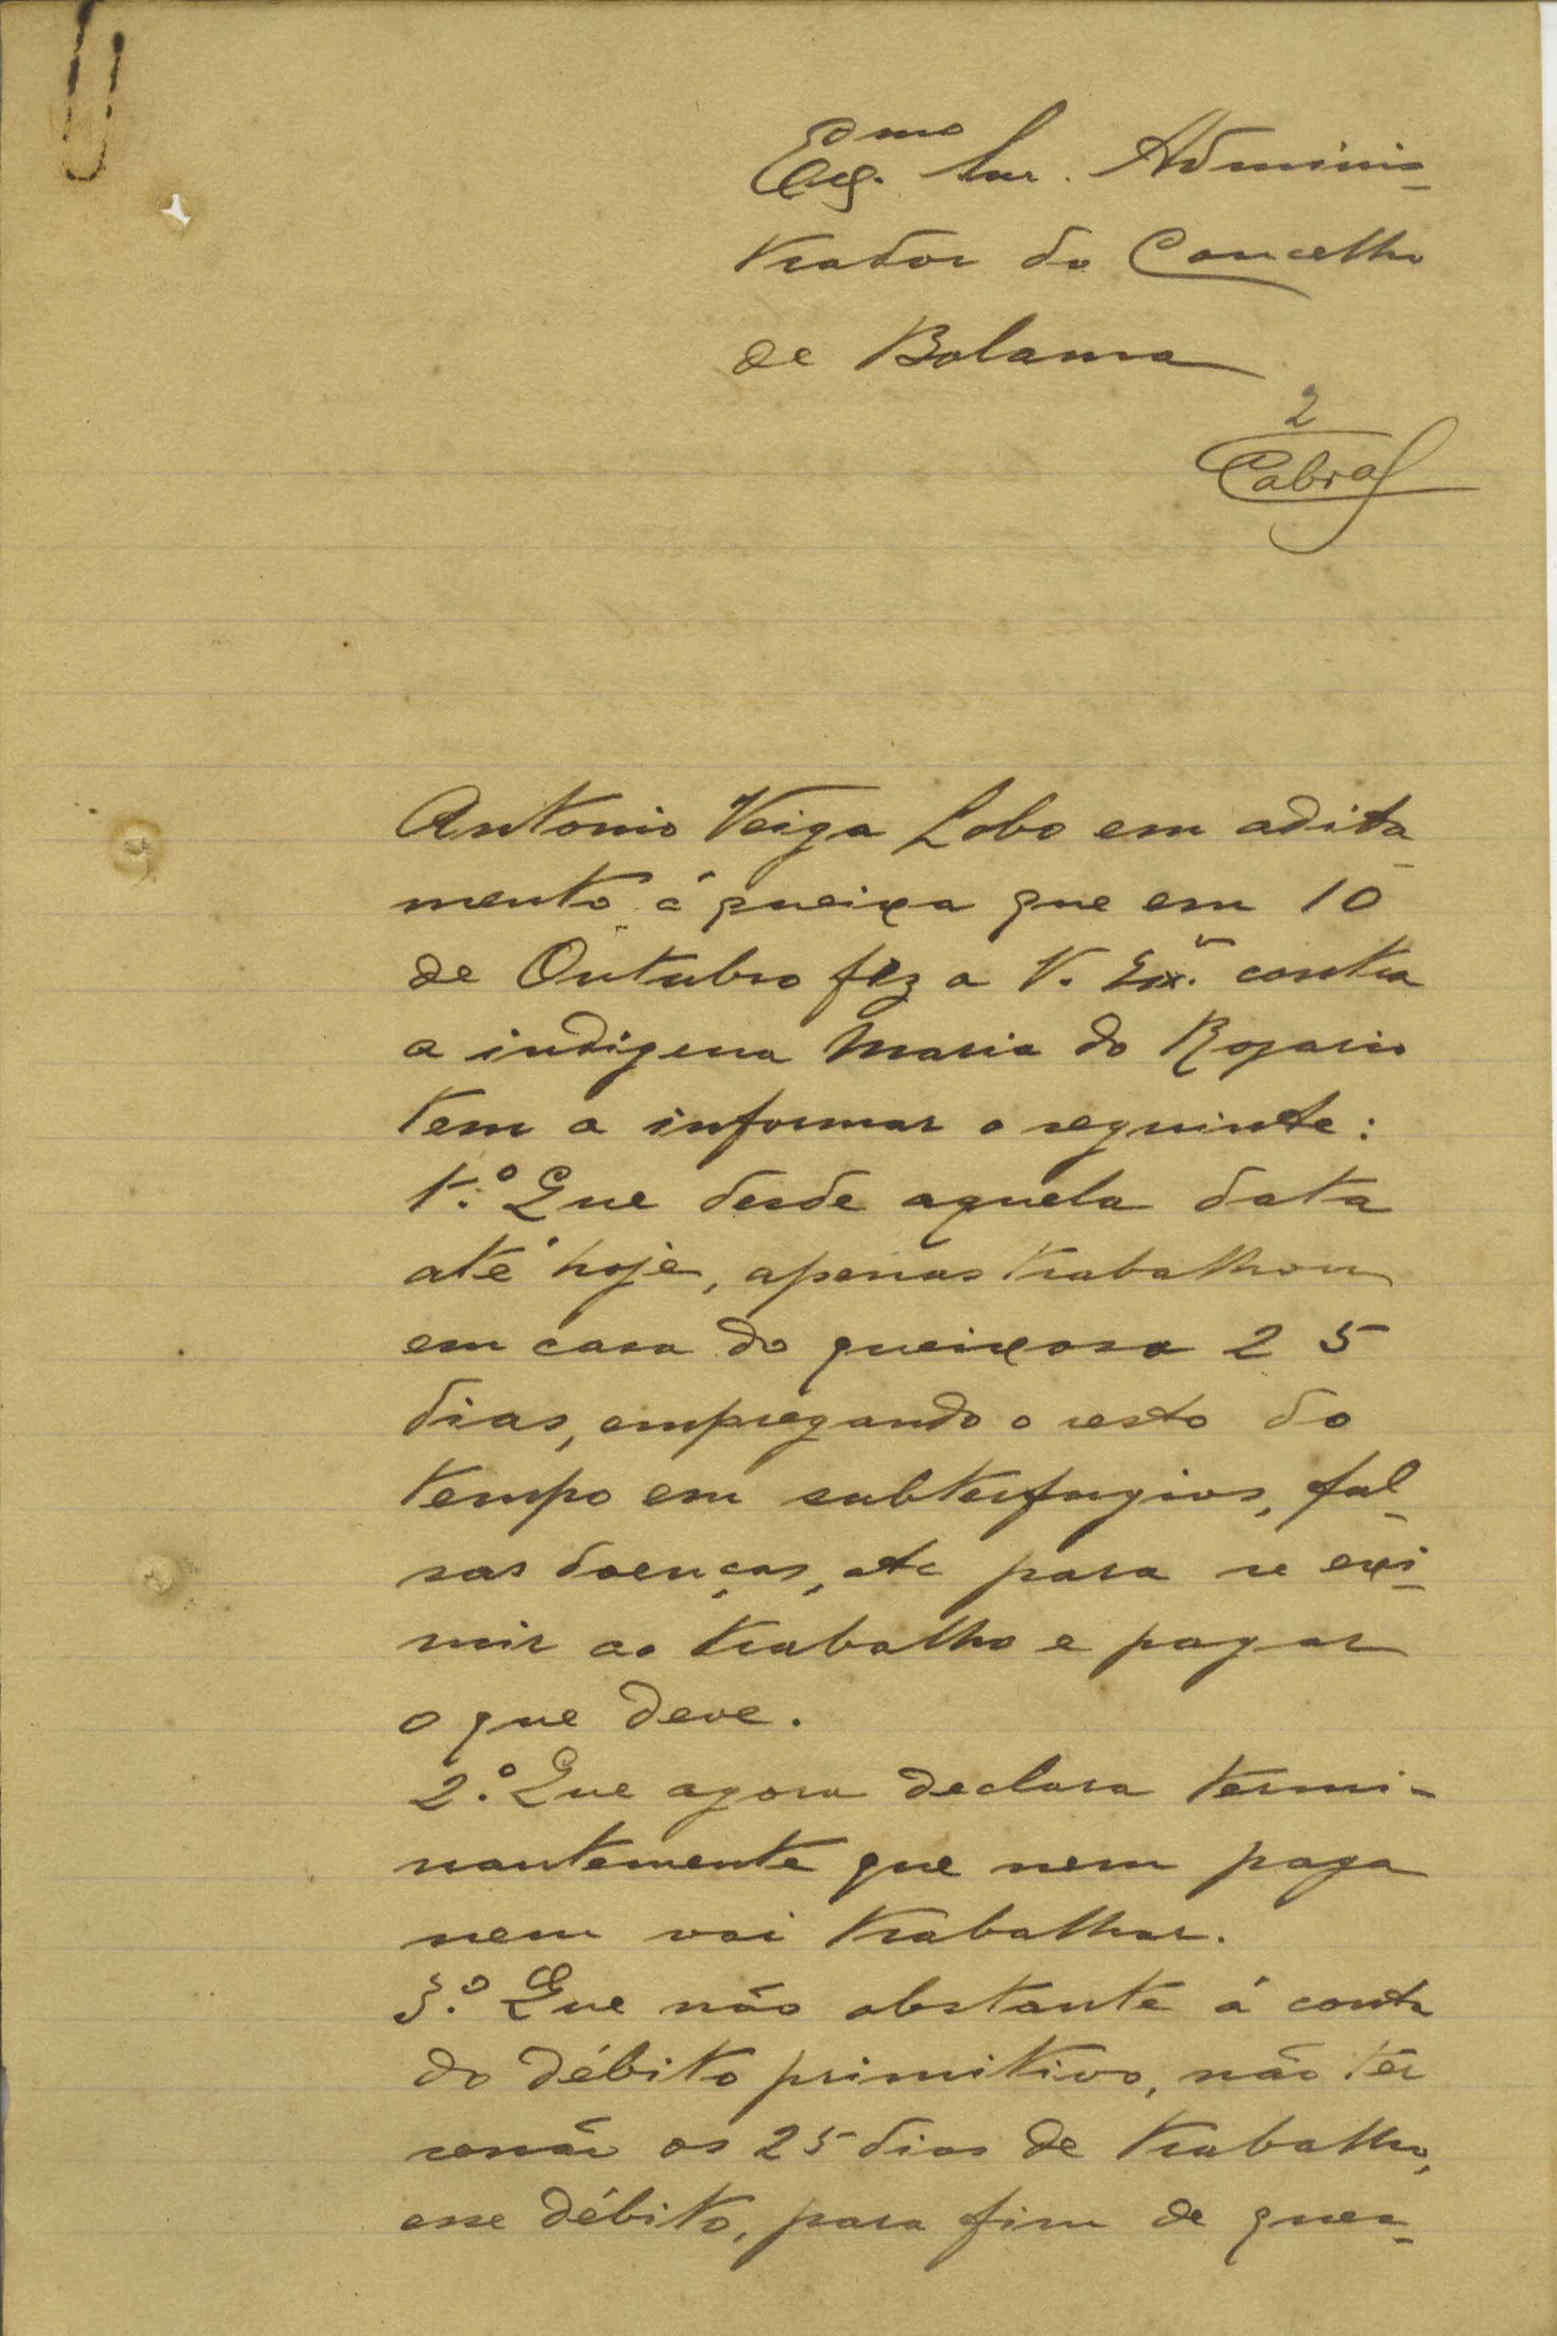 Exmo Snr. Adminis-
trador do Concelho
de Bolama
2
Cabral
Antonio Veiga Lobo em adita-
mento á queixa que em 10
de Outubro fez a V. Exa. contra
a indigena Maria do Rosario
tem a informar o seguinte:
1.º Que desde aquela data
até hoje, apenas trabalhou
em casa do queixoso 25
dias, empregando o resto do
tempo em subterfugios, fal-
sas doenças, etc para se exi-
mir ao trabalho e pagar
o que deve.
2.º Que agora declara termi-
nantemente que nem paga
nem vai trabalhar.
3.º Que não obstante á conta
do débito primitivo, não ter
senão os 25 dias de trabalho,
esse débito, para fim de ques-